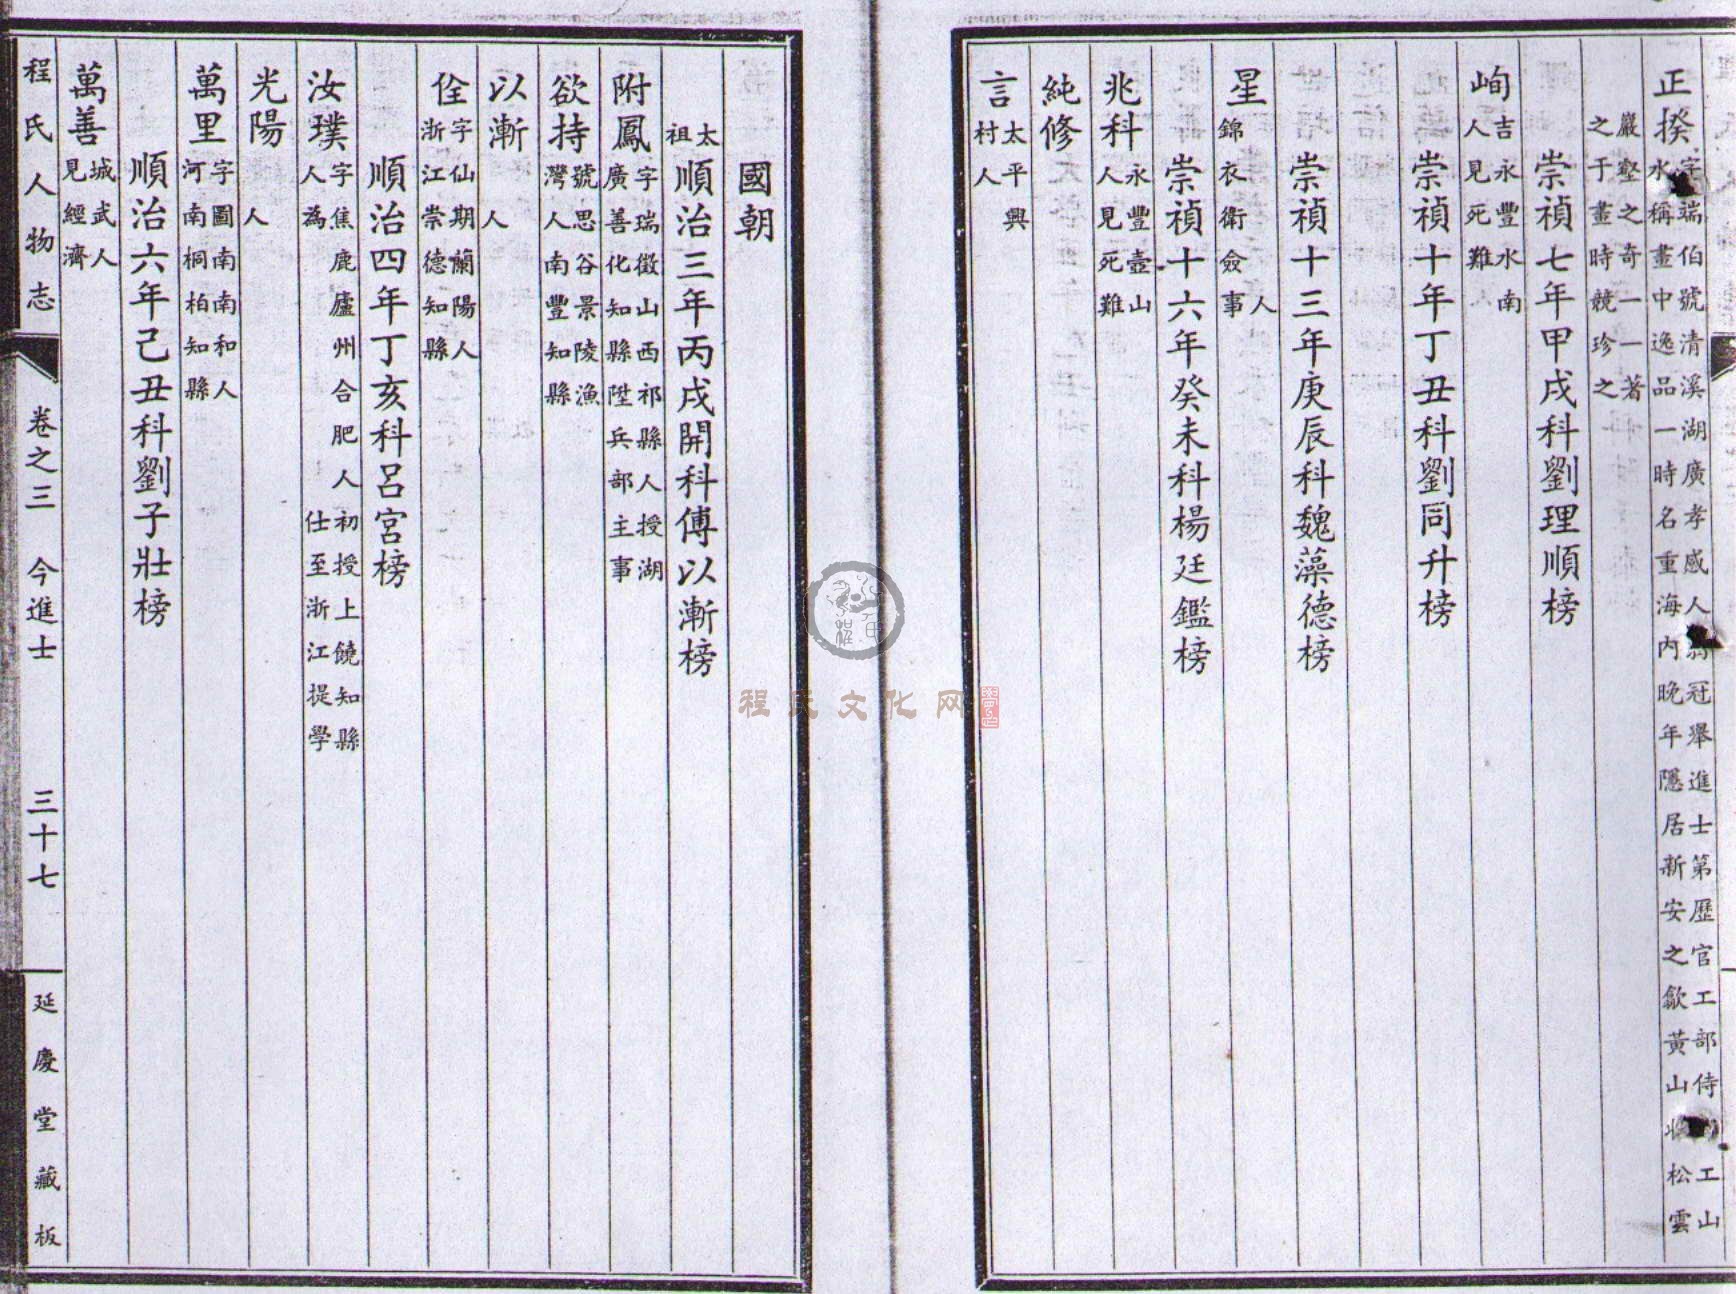 正揆 字端伯號清溪湖廣孝感人 冠舉進士第歷官工部侍 工山
水稱畫中逸品一時名重海內晚年隱居新安之歙黃山 松雲
巖壑之奇一一著
之于畫時競珍之
崇禎七年甲戌科劉理順榜
峋 吉永豐水南
人見死難
崇禎十年丁丑科劉同升榜
崇禎十三年庚辰科魏藻德榜
星 人
錦衣衛僉事
崇禎十六年癸未科楊廷鑑榜
兆科 永豐壺山
人見死難
純修
言 太平興
村人
國朝
太
祖
順治三年丙戌開科傅以漸榜
附鳳 字瑞徵山西祁縣人授湖
廣善化知縣陞兵部主事
欲持 號思谷景陵漁
灣人南豐知縣
以漸 人
佺 字仙期蘭陽人
浙江崇德知縣
順治四年丁亥科呂宮榜
汝璞 字焦鹿廬州合肥人初授上饒知縣
人為 仕至浙江提學
光陽 人
萬里 字圖南南和人
河南桐柏知縣
順治六年己丑科劉子壯榜
萬善 城武人
見經濟
程氏人物志 卷之三 今進士 三十七 延慶堂藏板
程氏文化网